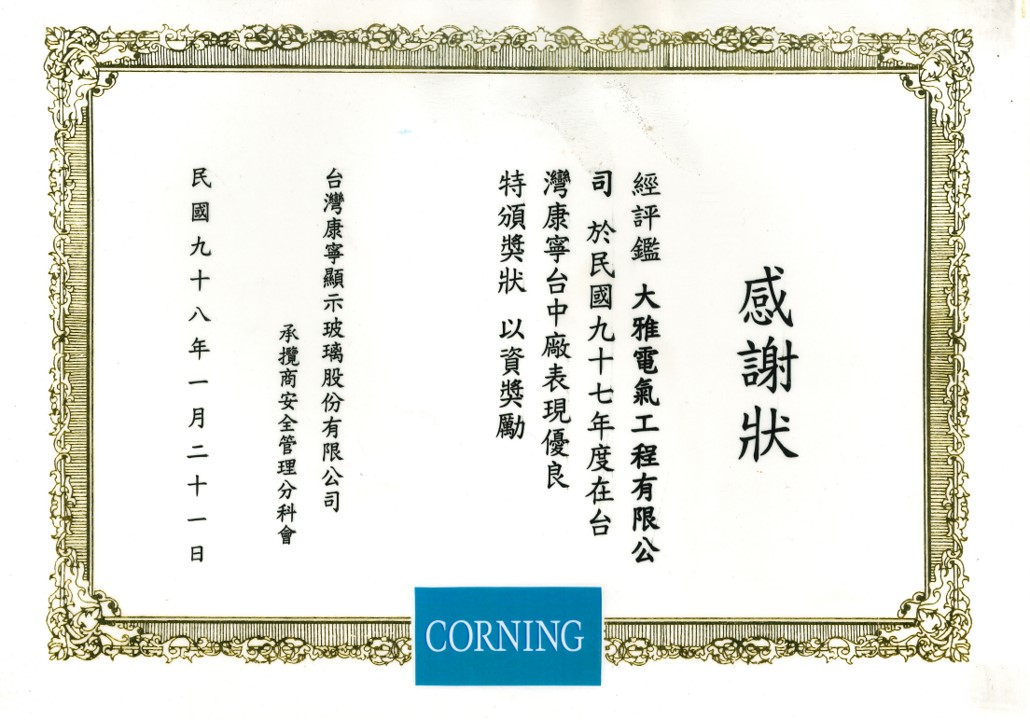 感謝狀
經評鑑 大雅電氣工程有限公
司 於民國九十七年度在台
灣康寧台中廠表現優良
特頒獎狀 以資獎勵
台灣康寧顯示玻璃股份有限公司
承攬商安全管理分科會
民國九十八年一月二十一日
CORNING